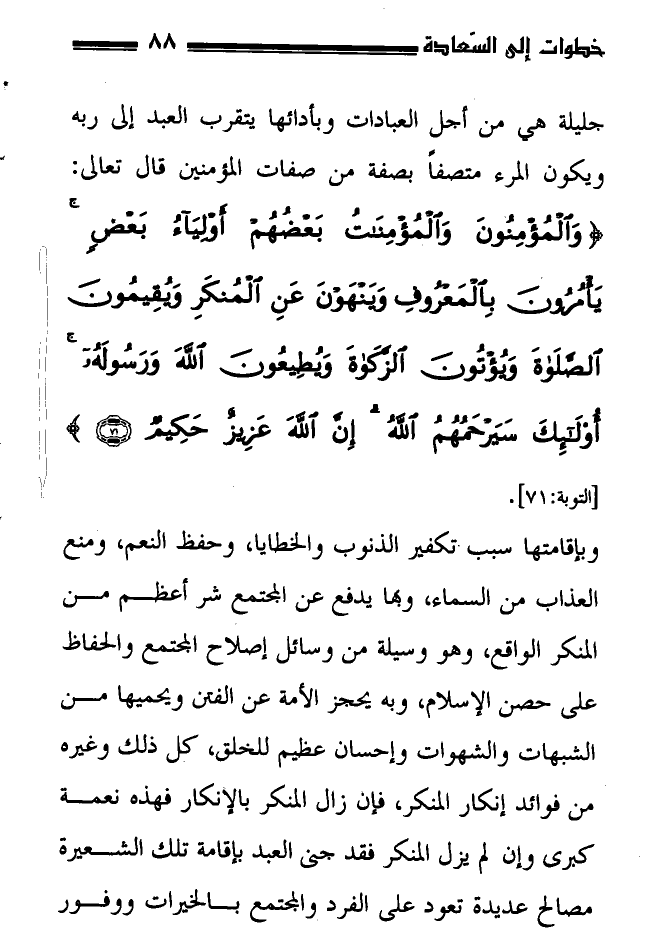 خطوات إلى السّعادة ٨٨
جليلة هي من أجل العبادات وبأدائها يتقرب العبد إلى ربه
ويكون المرء متصفاً بصفة من صفات المؤمنين قال تعالى:
﴿ وَٱلْمُؤْمِنُونَ وَٱلْمُؤْمِنَٰتُ بَعْضُهُمْ أَوْلِيَآءُ بَعْضٍ ۚ
يَأْمُرُونَ بِٱلْمَعْرُوفِ وَيَنْهَوْنَ عَنِ ٱلْمُنكَرِ وَيُقِيمُونَ
ٱلصَّلَوٰةَ وَيُؤْتُونَ ٱلزَّكَوٰةَ وَيُطِيعُونَ ٱللَّهَ وَرَسُولَهُۥٓ ۚ
أُو۟لَٰٓئِكَ سَيَرْحَمُهُمُ ٱللَّهُ ۗ إِنَّ ٱللَّهَ عَزِيزٌ حَكِيمٌ ٧١ ﴾
[التوبة:٧١].
وبإقامتها سبب تكفير الذنوب والخطايا، وحفظ النعم، ومنع
العذاب من السماء، وبها يدفع عن المجتمع شر أعظم من
المنكر الواقع، وهو وسيلة من وسائل إصلاح المجتمع والحفاظ
على حصن الإسلام، وبه يحجز الأمة عن الفتن ويحميها من
الشبهات والشهوات وإحسان عظيم للخلق، كل ذلك وغيره
من فوائد إنكار المنكر، فإن زال المنكر بالإنكار فهذه نعمة
كبرى وإن لم يزل المنكر فقد جنى العبد بإقامة تلك الشعيرة
مصالح عديدة تعود على الفرد والمجتمع بالخيرات ووفور